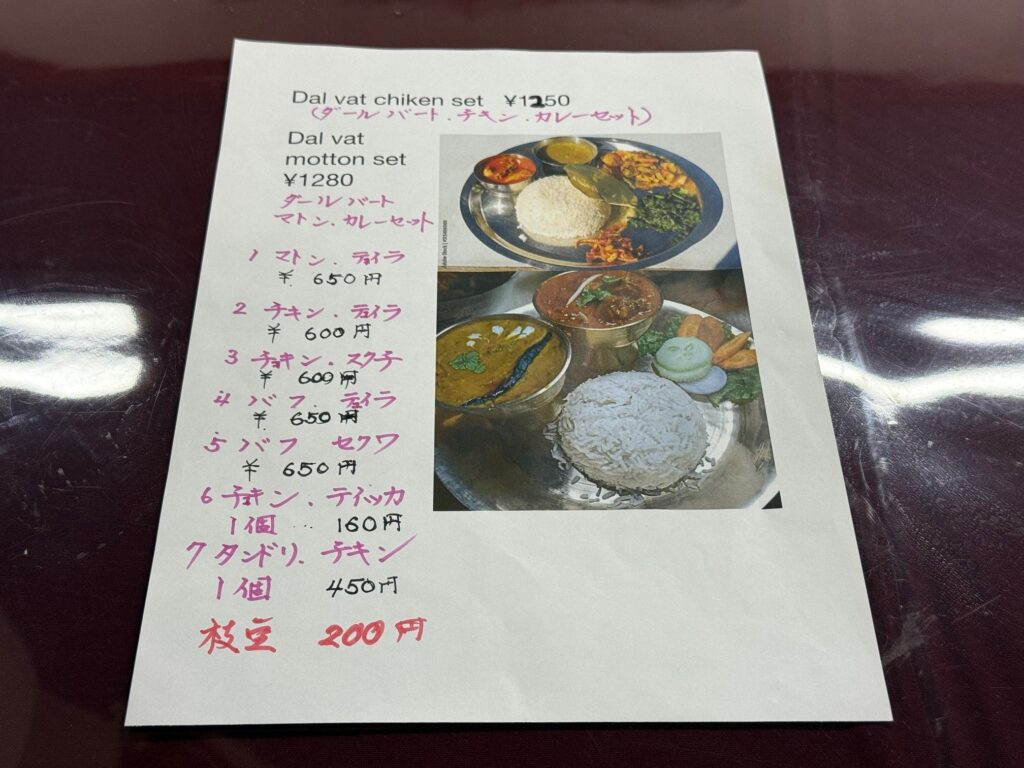 Dal vat chiken set ¥1250
(ダール バート.チキン.カレーセット)
Dal vat
motton set
¥1280
ダール バート
マトン.カレーセット
1 マトン.テイラ
¥ 650円
2 チキン.テイラ
¥ 600円
3 チョキン.スクチ
¥ 600円
4 バフ.テイラ
¥ 650円
5 バフ セクワ
¥ 650円
6 チョキン.テイッカ
1個 .. 160円
7 タンドリ.チキン
1個 450円
枝豆 200円